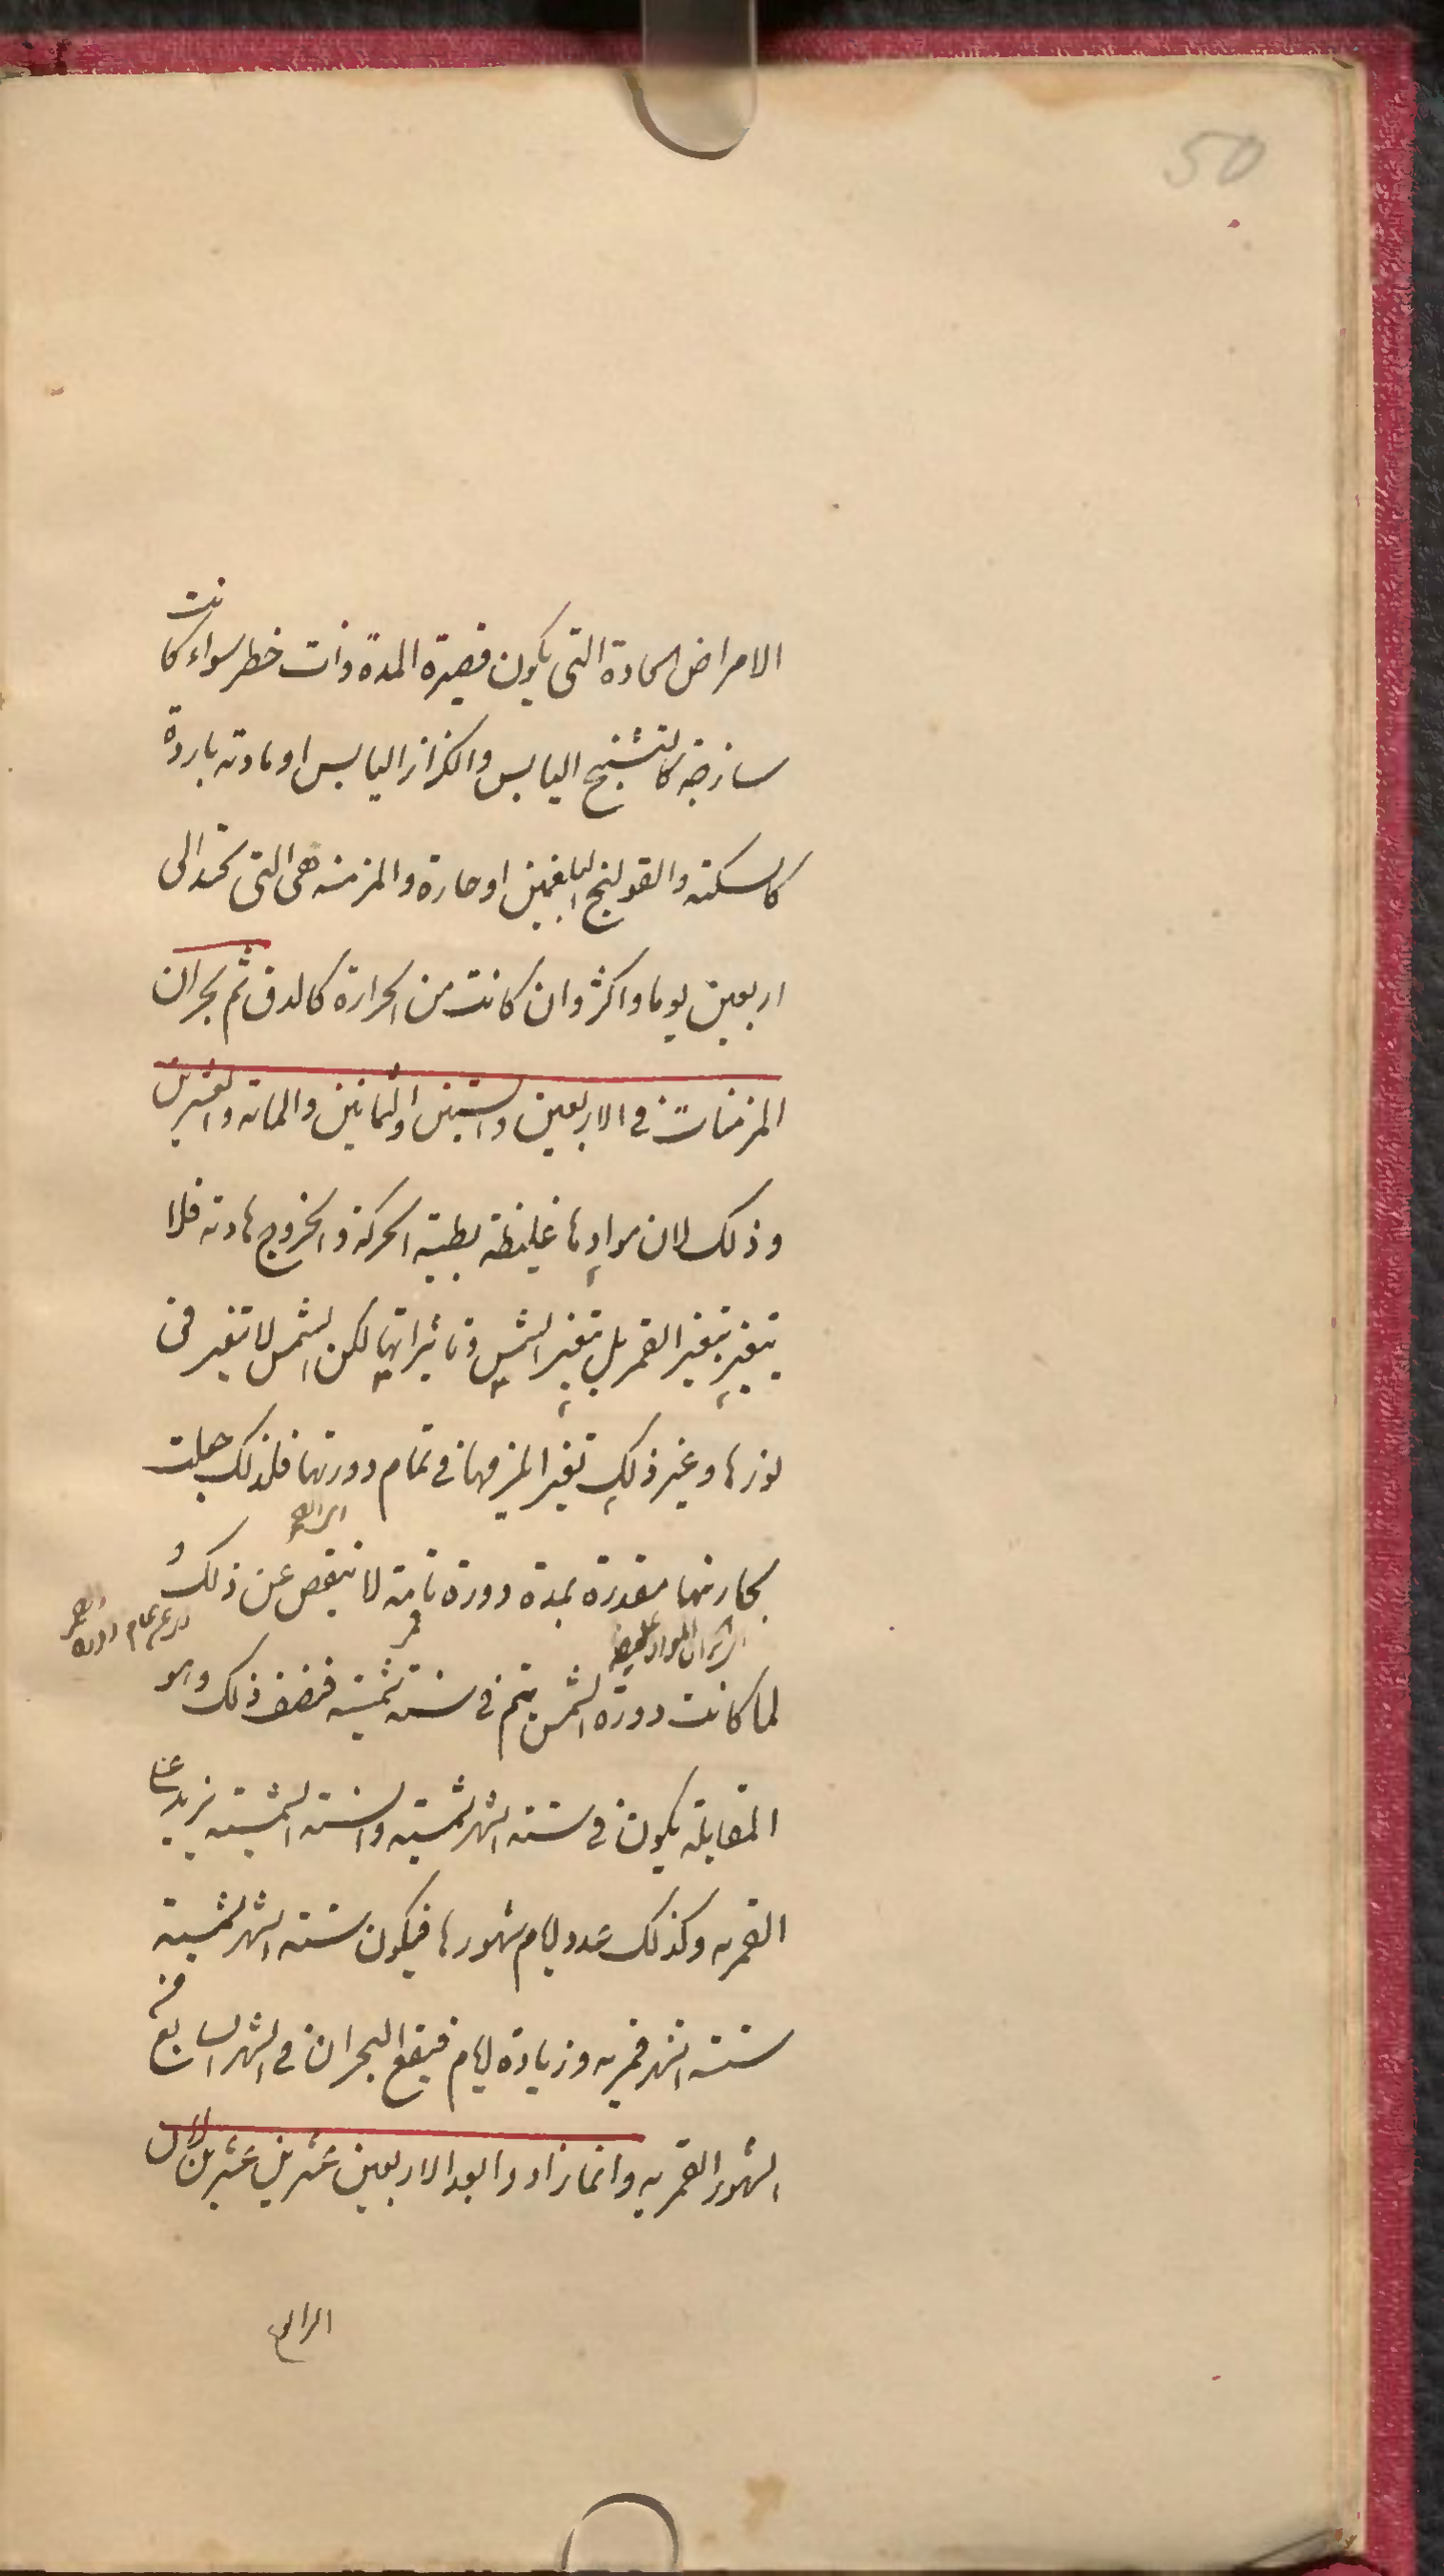 50
الامراض الحادة التى يكون قصيرة المدة ذات خطر سواء كانت
ساذجة كالتشنج اليابس والكزاز اليابس او مادته باردة
كالسكتة والقولنج البلغمين او حارة والمزمنة هى التى تمتد الى
اربعين يوما واكثر وان كانت من الحرارة كالدق ثم بحران
المزمنات فى الاربعين والستين والثمانين والمائة والعشرين
وذلك لان موادها غليظة بطيئة الحركة والخروج هادئة فلا
يتغير بتغير القمر بل بتغير الشمس وتاثيراتها لكن الشمس لا تتغير فى
نورها وغير ذلك تغير فى تمام دورتها فلذلك جعلت
بحارينها مقدرة بمدة دورة تامة لا تنقص عن ذلك و
لما كانت دورة الشمس يتم فى سنة شمسية فنصف ذلك وهو
المقابلة يكون فى ستة اشهر شمسية والسنة الشمسية تزيد على
القمرية وكذلك عدد ايام شهورها فيكون ستة اشهر شمسية
ستة اشهر قمرية وزيادة ايام فيقع البحران فى الشهر السابع من
الشهور القمرية وانما زادوا بعد الاربعين عشرين عشرين لان
الرابع